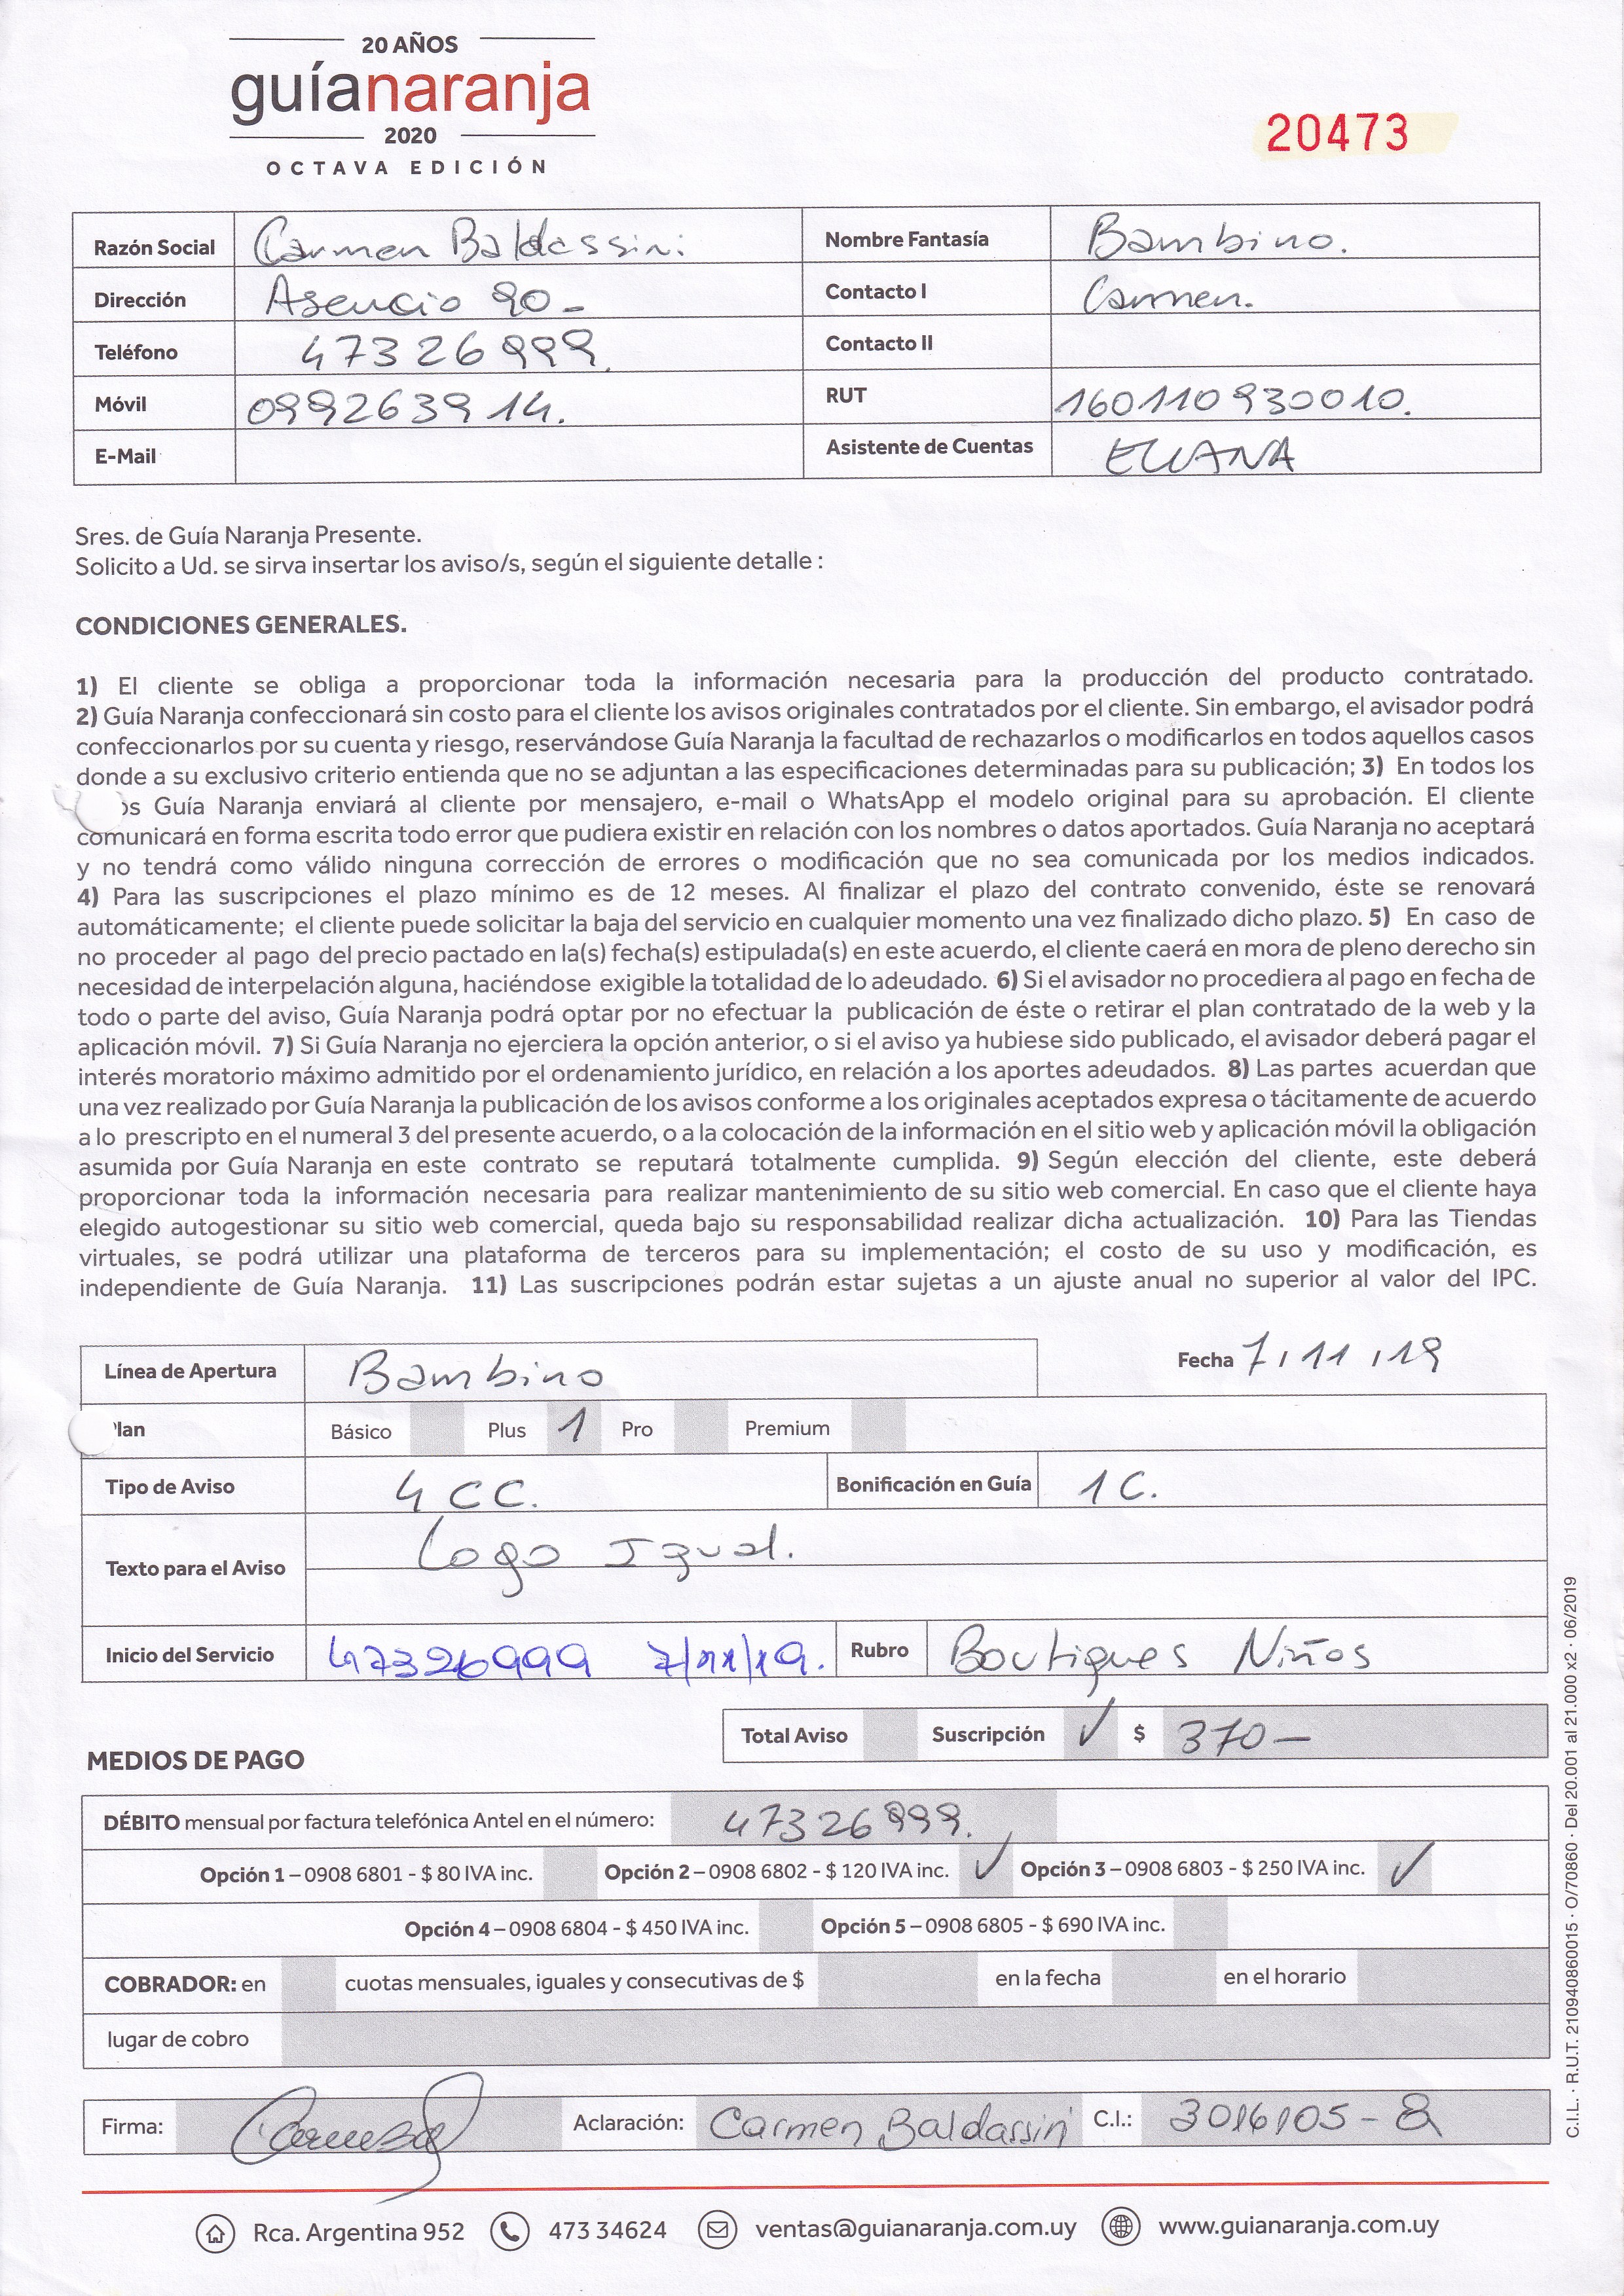 20 AÑOS
guíanaranja
2020
OCTAVA EDICIÓN
20473
Razón Social Carmen Baldassini Nombre Fantasía Bambino.
Dirección Asencio 90- Contacto I Carmen.
Teléfono 47326999. Contacto II
Móvil 099263914. RUT 160110930010.
E-Mail Asistente de Cuentas ELIANA
Sres. de Guía Naranja Presente.
Solicito a Ud. se sirva insertar los aviso/s, según el siguiente detalle :
CONDICIONES GENERALES.
1) El cliente se obliga a proporcionar toda la información necesaria para la producción del producto contratado.
2) Guía Naranja confeccionará sin costo para el cliente los avisos originales contratados por el cliente. Sin embargo, el avisador podrá
confeccionarlos por su cuenta y riesgo, reservándose Guía Naranja la facultad de rechazarlos o modificarlos en todos aquellos casos
donde a su exclusivo criterio entienda que no se adjuntan a las especificaciones determinadas para su publicación; 3) En todos los
os Guía Naranja enviará al cliente por mensajero, e-mail o WhatsApp el modelo original para su aprobación. El cliente
comunicará en forma escrita todo error que pudiera existir en relación con los nombres o datos aportados. Guía Naranja no aceptará
y no tendrá como válido ninguna corrección de errores o modificación que no sea comunicada por los medios indicados.
4) Para las suscripciones el plazo mínimo es de 12 meses. Al finalizar el plazo del contrato convenido, éste se renovará
automáticamente; el cliente puede solicitar la baja del servicio en cualquier momento una vez finalizado dicho plazo. 5) En caso de
no proceder al pago del precio pactado en la(s) fecha(s) estipulada(s) en este acuerdo, el cliente caerá en mora de pleno derecho sin
necesidad de interpelación alguna, haciéndose exigible la totalidad de lo adeudado. 6) Si el avisador no procediera al pago en fecha de
todo o parte del aviso, Guía Naranja podrá optar por no efectuar la publicación de éste o retirar el plan contratado de la web y la
aplicación móvil. 7) Si Guía Naranja no ejerciera la opción anterior, o si el aviso ya hubiese sido publicado, el avisador deberá pagar el
interés moratorio máximo admitido por el ordenamiento jurídico, en relación a los aportes adeudados. 8) Las partes acuerdan que
una vez realizado por Guía Naranja la publicación de los avisos conforme a los originales aceptados expresa o tácitamente de acuerdo
a lo prescripto en el numeral 3 del presente acuerdo, o a la colocación de la información en el sitio web y aplicación móvil la obligación
asumida por Guía Naranja en este contrato se reputará totalmente cumplida. 9) Según elección del cliente, este deberá
proporcionar toda la información necesaria para realizar mantenimiento de su sitio web comercial. En caso que el cliente haya
elegido autogestionar su sitio web comercial, queda bajo su responsabilidad realizar dicha actualización. 10) Para las Tiendas
virtuales, se podrá utilizar una plataforma de terceros para su implementación; el costo de su uso y modificación, es
independiente de Guía Naranja. 11) Las suscripciones podrán estar sujetas a un ajuste anual no superior al valor del IPC.
Línea de Apertura Bambino Fecha 7/11/19
lan Básico Plus 1 Pro Premium
Tipo de Aviso 4 CC. Bonificación en Guía 1 C.
Texto para el Aviso Logo Igual.
Inicio del Servicio 47326999 7/11/19. Rubro Boutiques Niños
Total Aviso Suscripción ✓ $ 370—
MEDIOS DE PAGO
DÉBITO mensual por factura telefónica Antel en el número: 47326999.
Opción 1 – 0908 6801 - $ 80 IVA inc. Opción 2 – 0908 6802 - $ 120 IVA inc. ✓ Opción 3 – 0908 6803 - $ 250 IVA inc. ✓
Opción 4 – 0908 6804 - $ 450 IVA inc. Opción 5 – 0908 6805 - $ 690 IVA inc.
COBRADOR: en cuotas mensuales, iguales y consecutivas de $ en la fecha en el horario
lugar de cobro
Firma: Aclaración: Carmen Baldassini C.I.: 3016105-8
Rca. Argentina 952 473 34624 ventas@guianaranja.com.uy www.guianaranja.com.uy
C.I.L. · R.U.T. 210940860015 · O/70860 · Del 20.001 al 21.000 x2 · 06/2019